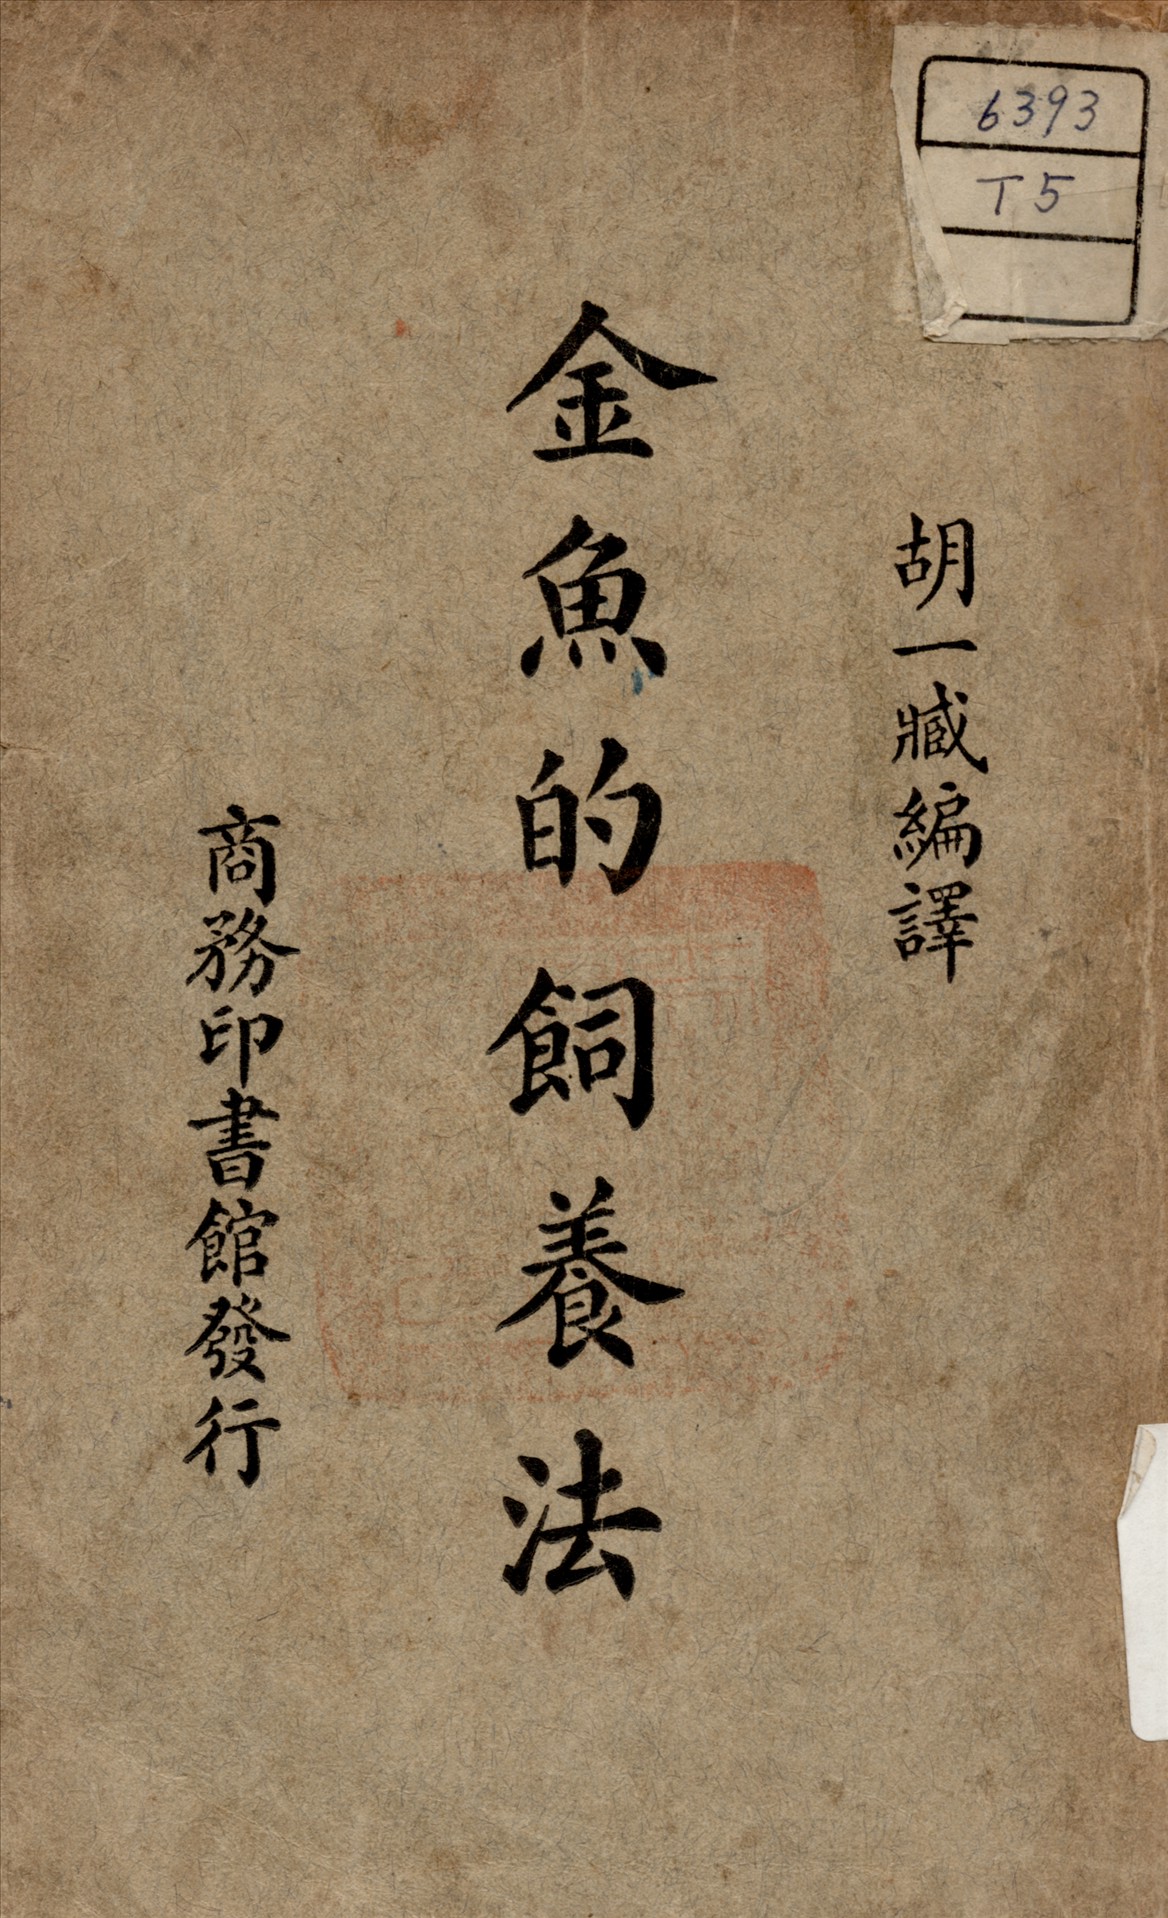 6393
T5
胡一臧編譯
金魚的飼養法
商務印書館發行